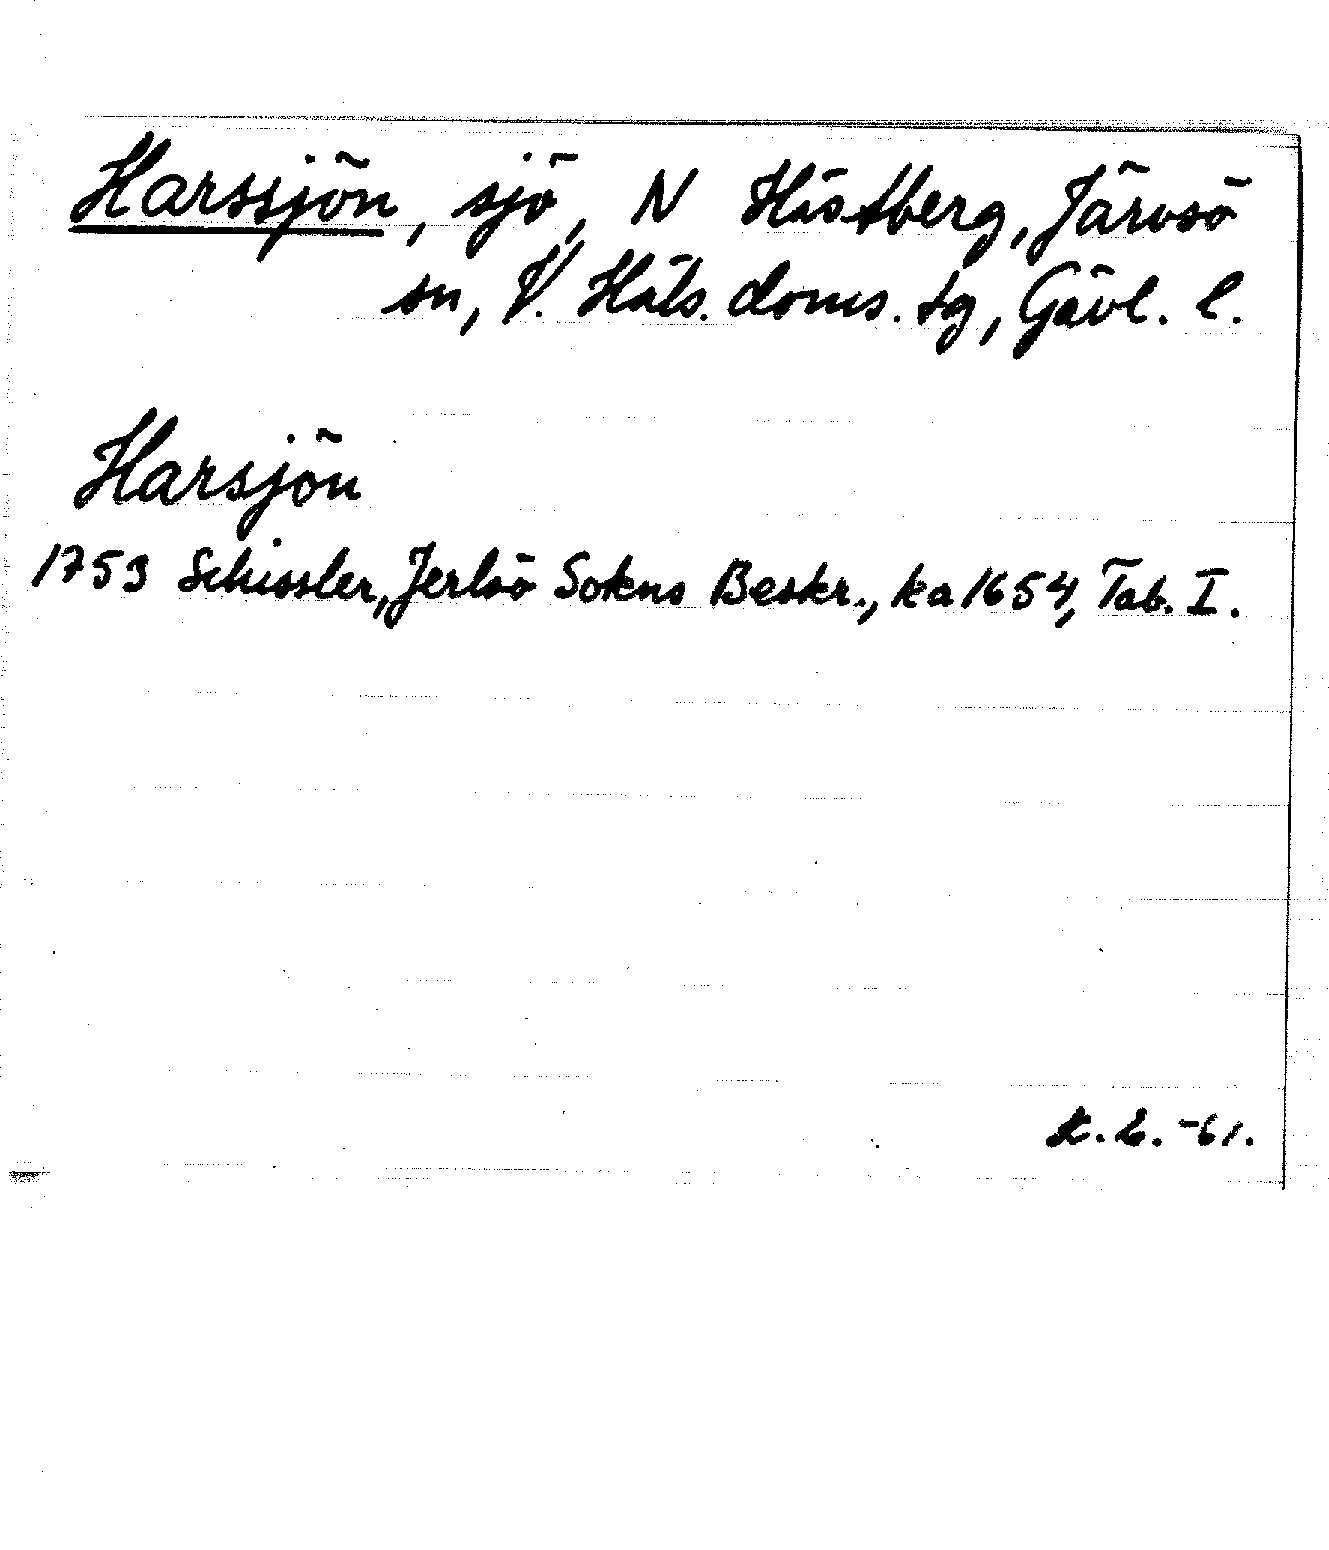 Harssjön, sjö, N Hästberg, Järvsö
sn, V. Häls. doms. tg, Gävl. l.
Harsjön
1753 Schissler, Jerlsö Sokns Beskr., ka 1654, Tab. I.
-61.